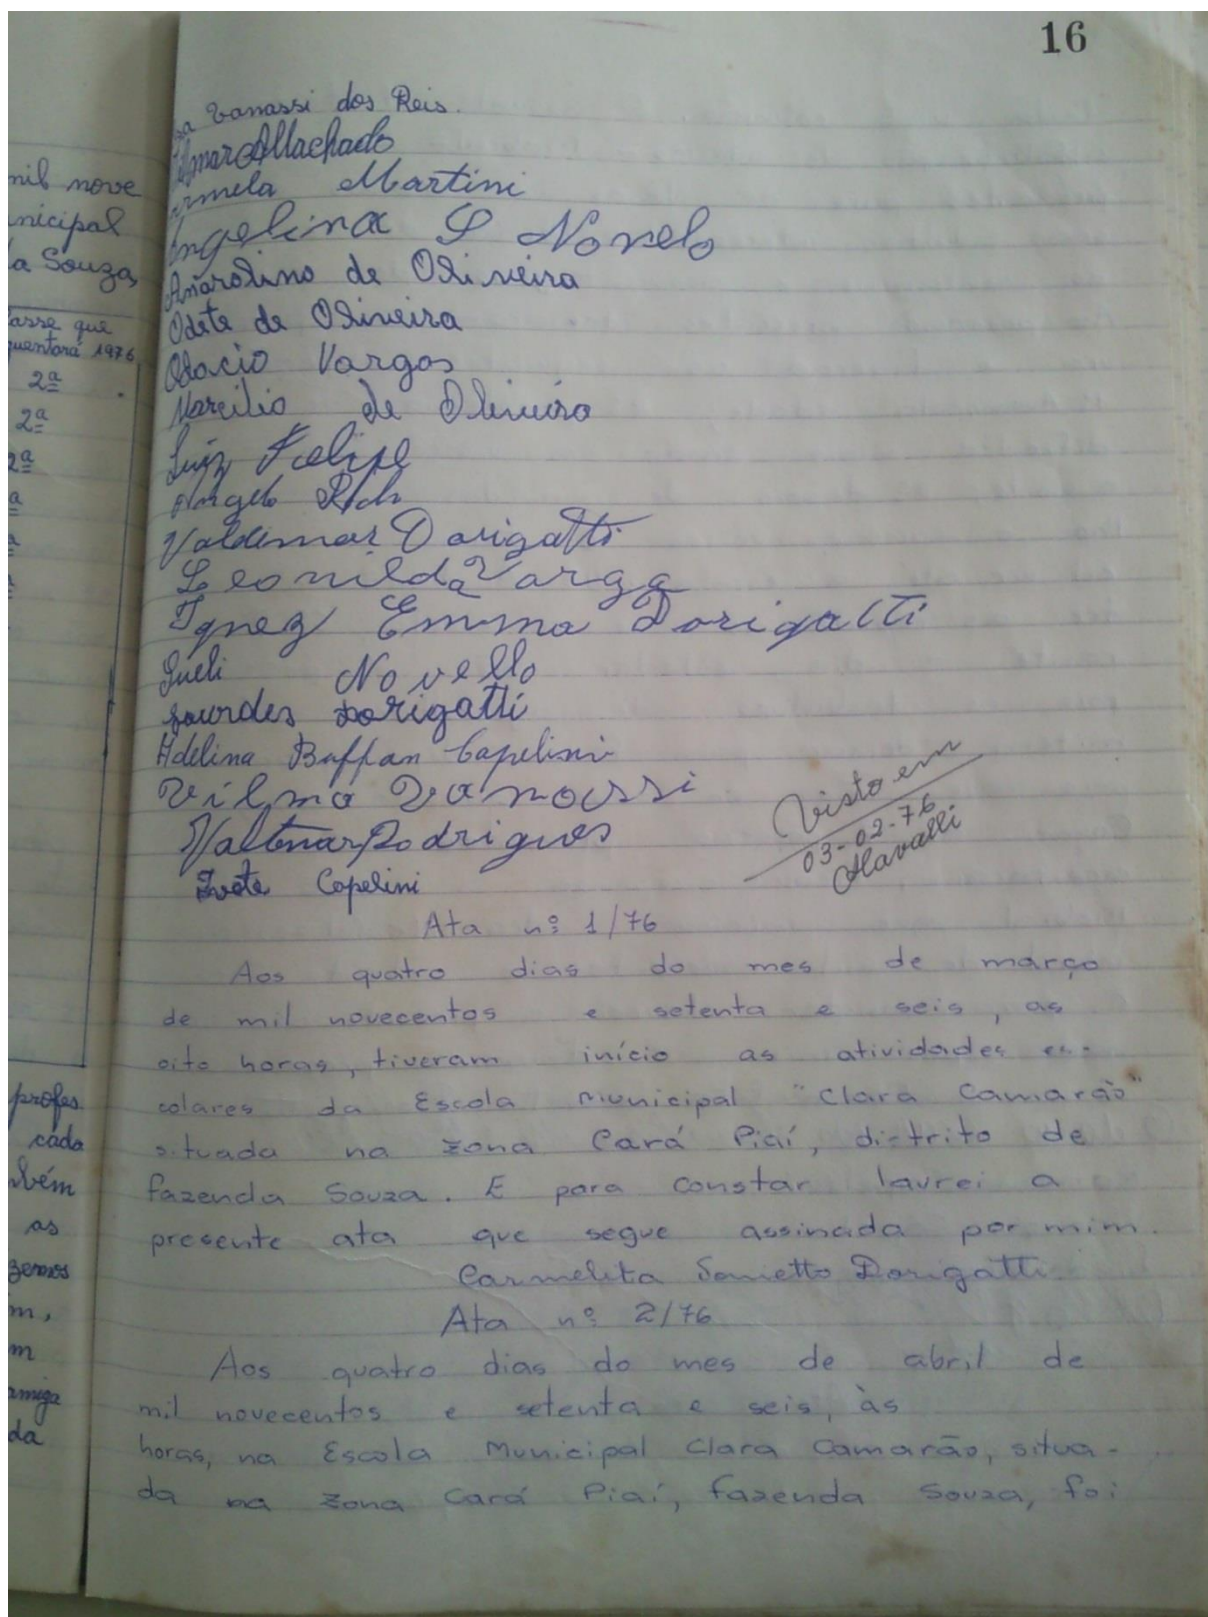 16
mil nove
nicipal
a Souza,
asse que
quentará 1976
2ª
2ª
2ª
ª
profes
cada
bém
as
zemos
m,
m
amiga
da
Vanassi dos Reis.
Machado
Martini
Angelina S Novelo
Amarolino de Oliveira
Odete de Oliveira
Olacio Vargas
Marcilio de Oliveira
Luiz Felipe
Angelo
Valdemar Dorigatti
Leonilda Varga
Ignez Emma Dorigatti
Sueli Novello
Lourdes Dorigatti
Adelina Buffon Capelini
Vilma Vanassi
Rodrigues
Ivete Capelini
Visto em
03-02-76
Ata nº 1/76
Aos quatro dias do mes de março
de mil novecentos e setenta e seis, as
oito horas, tiveram início as atividades es-
colares da Escola Municipal "Clara Camarão"
situada na zona Cará Piaí, distrito de
fazenda Souza. E para constar lavrei a
presente ata que segue assinada por mim.
Carmelita Sonietto Dorigatti
Ata nº 2/76
Aos quatro dias do mes de abril de
mil novecentos e setenta e seis, às
horas, na Escola Municipal Clara Camarão, situa-
da na zona Cará Piaí, fazenda Souza, foi